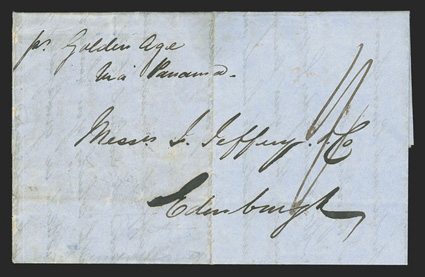 pr. Golden Age
Via Panama.
Messrs J. Jeffrey & Co
Edinburgh